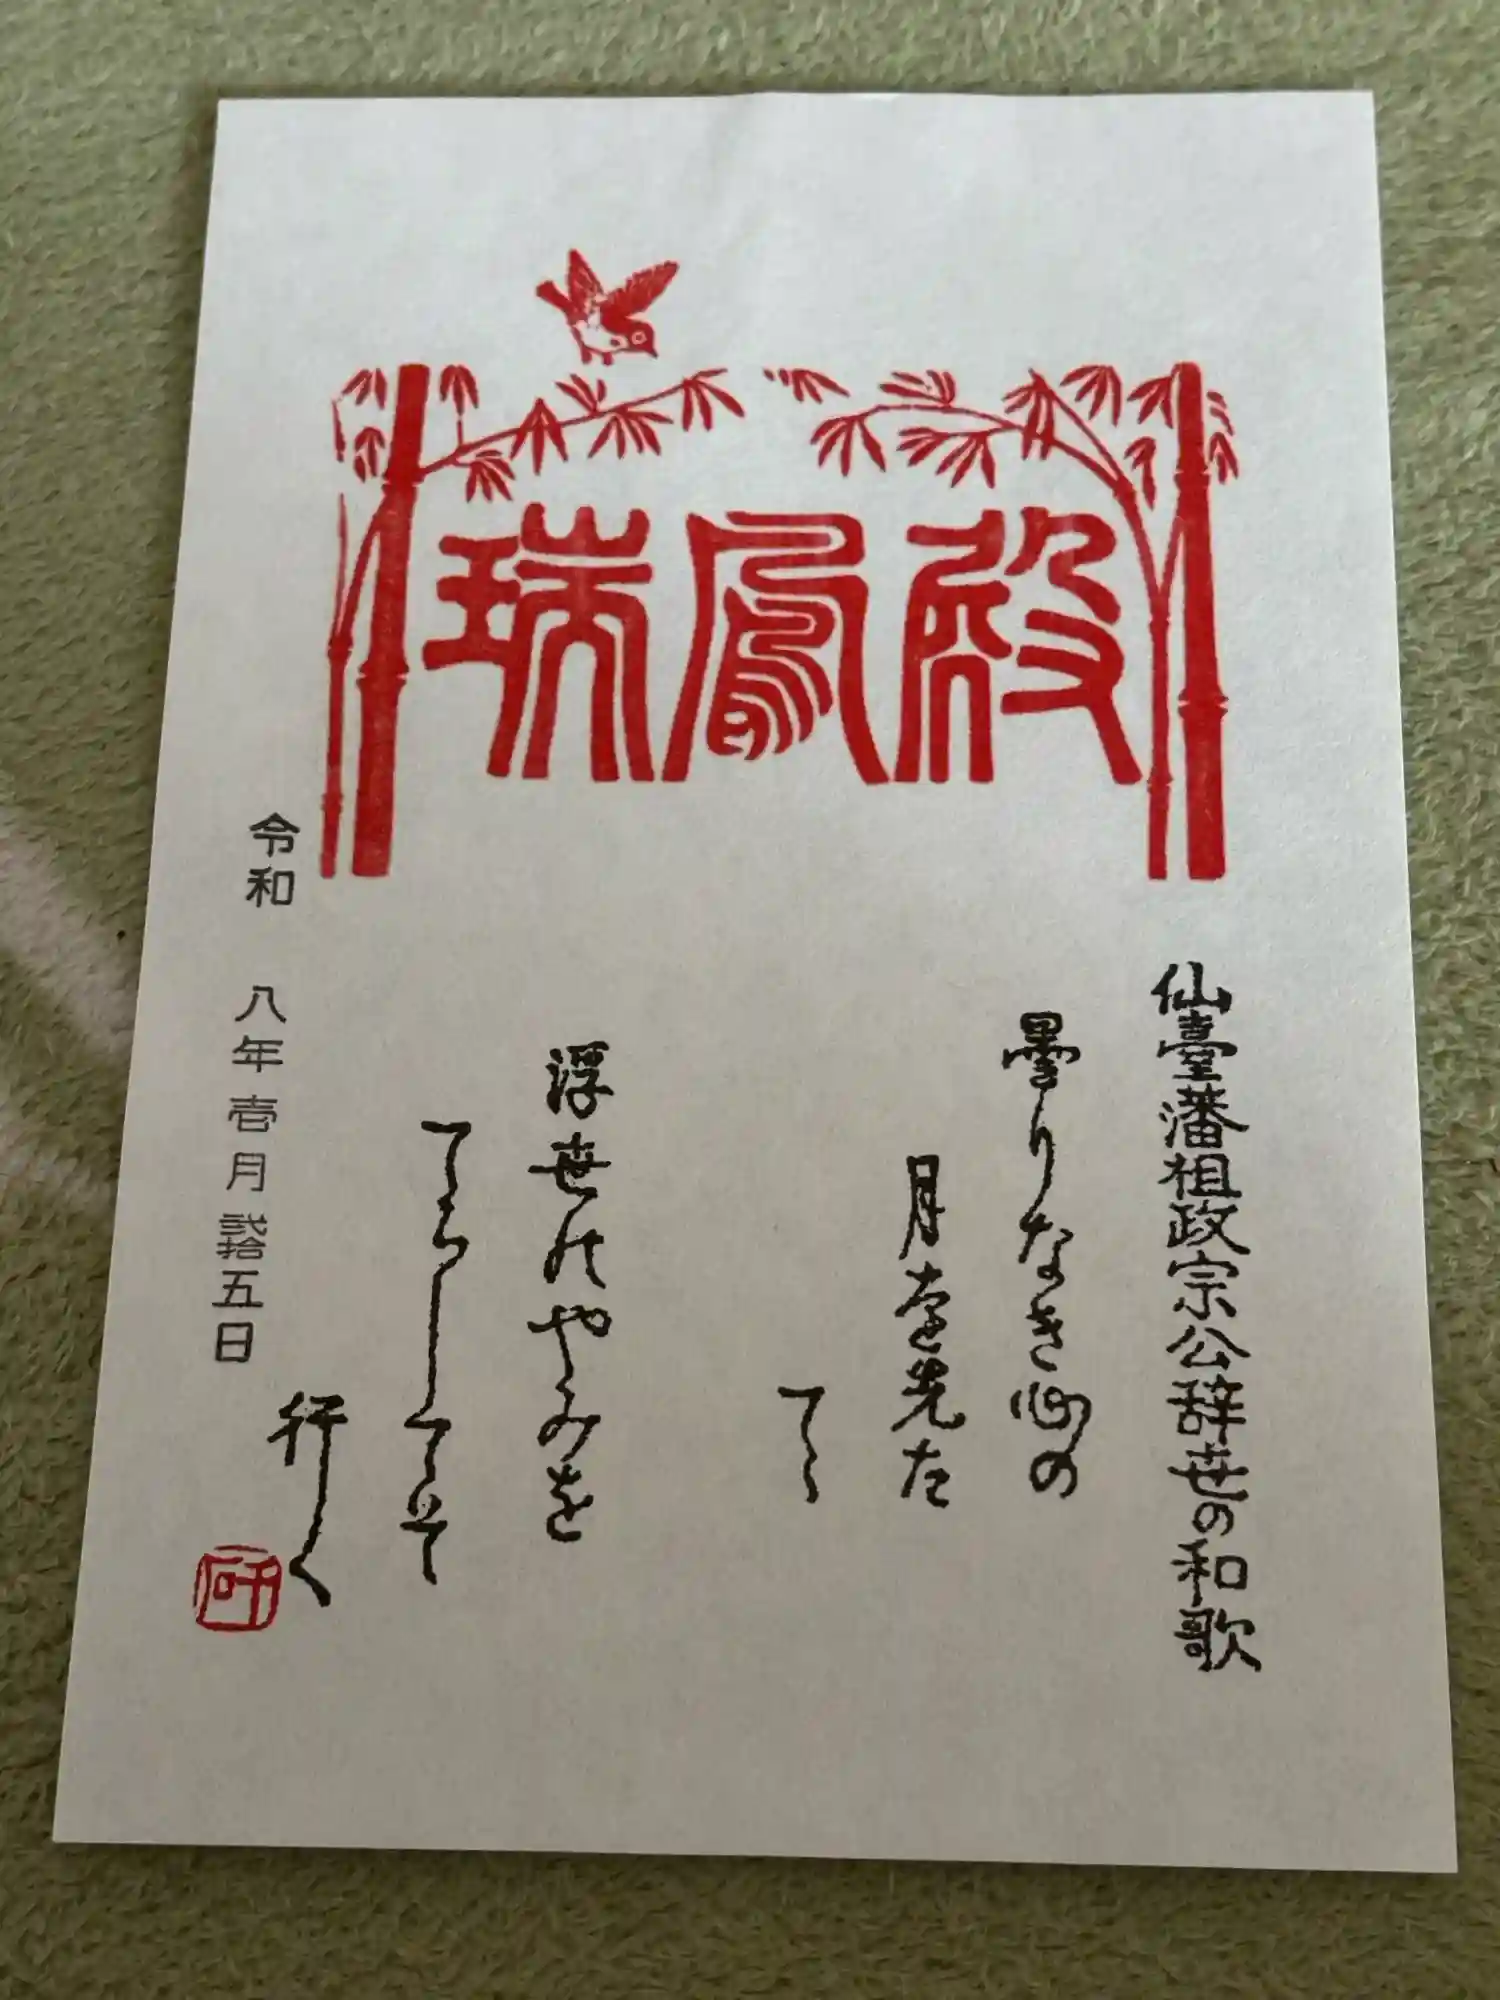 瑞鳳殿
仙臺藩祖政宗公辞世の和歌
曇りなき心の
月を先た
てゝ
浮世のやみを
てらしてそ
行く
令和 八年壱月弐拾五日